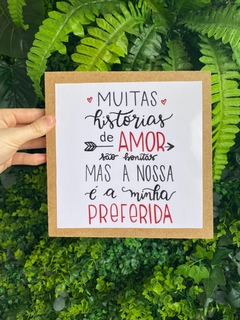 MUITAS
histórias
de AMOR
são bonitas
MAS A NOSSA
é a minha
PREFERIDA